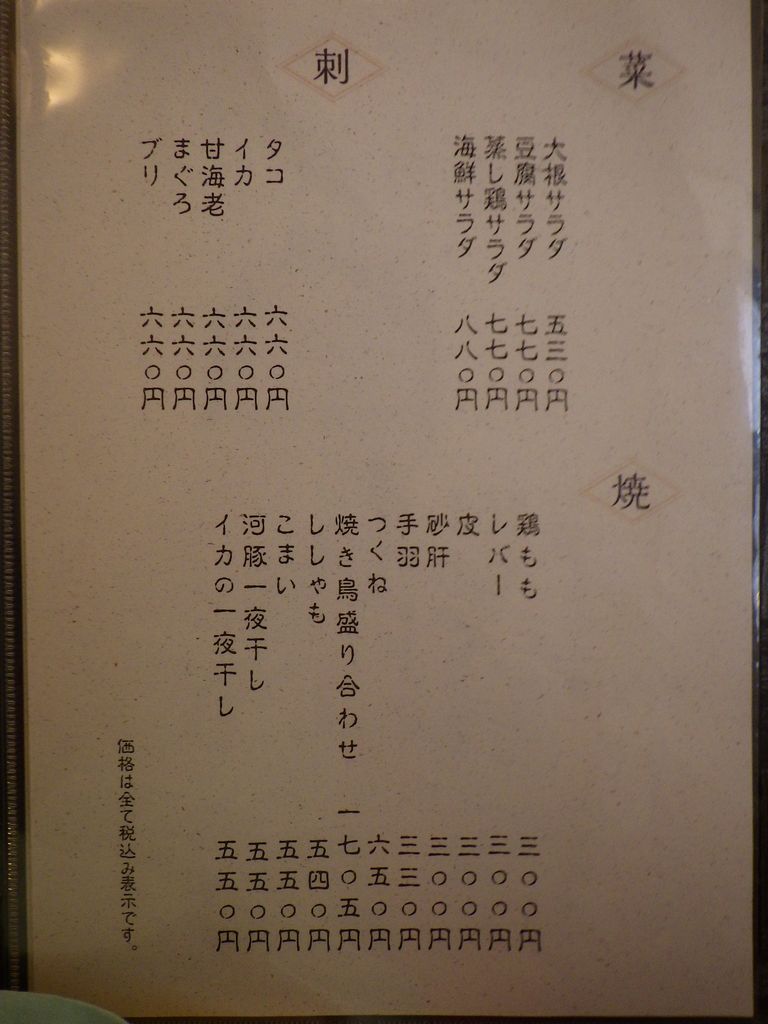 菜
大根サラダ 五三〇円
豆腐サラダ 七七〇円
蒸し鶏サラダ 七七〇円
海鮮サラダ 八八〇円
刺
タコ 六六〇円
イカ 六六〇円
甘海老 六六〇円
まぐろ 六六〇円
ブリ 六六〇円
焼
鶏もも 三〇〇円
レバー 三〇〇円
皮 三〇〇円
砂肝 三〇〇円
手羽 三三〇円
つくね 六五〇円
焼き鳥盛り合わせ 一七〇五円
ししゃも 五四〇円
こまい 五五〇円
河豚一夜干し 五五〇円
イカの一夜干し 五五〇円
価格は全て税込み表示です。